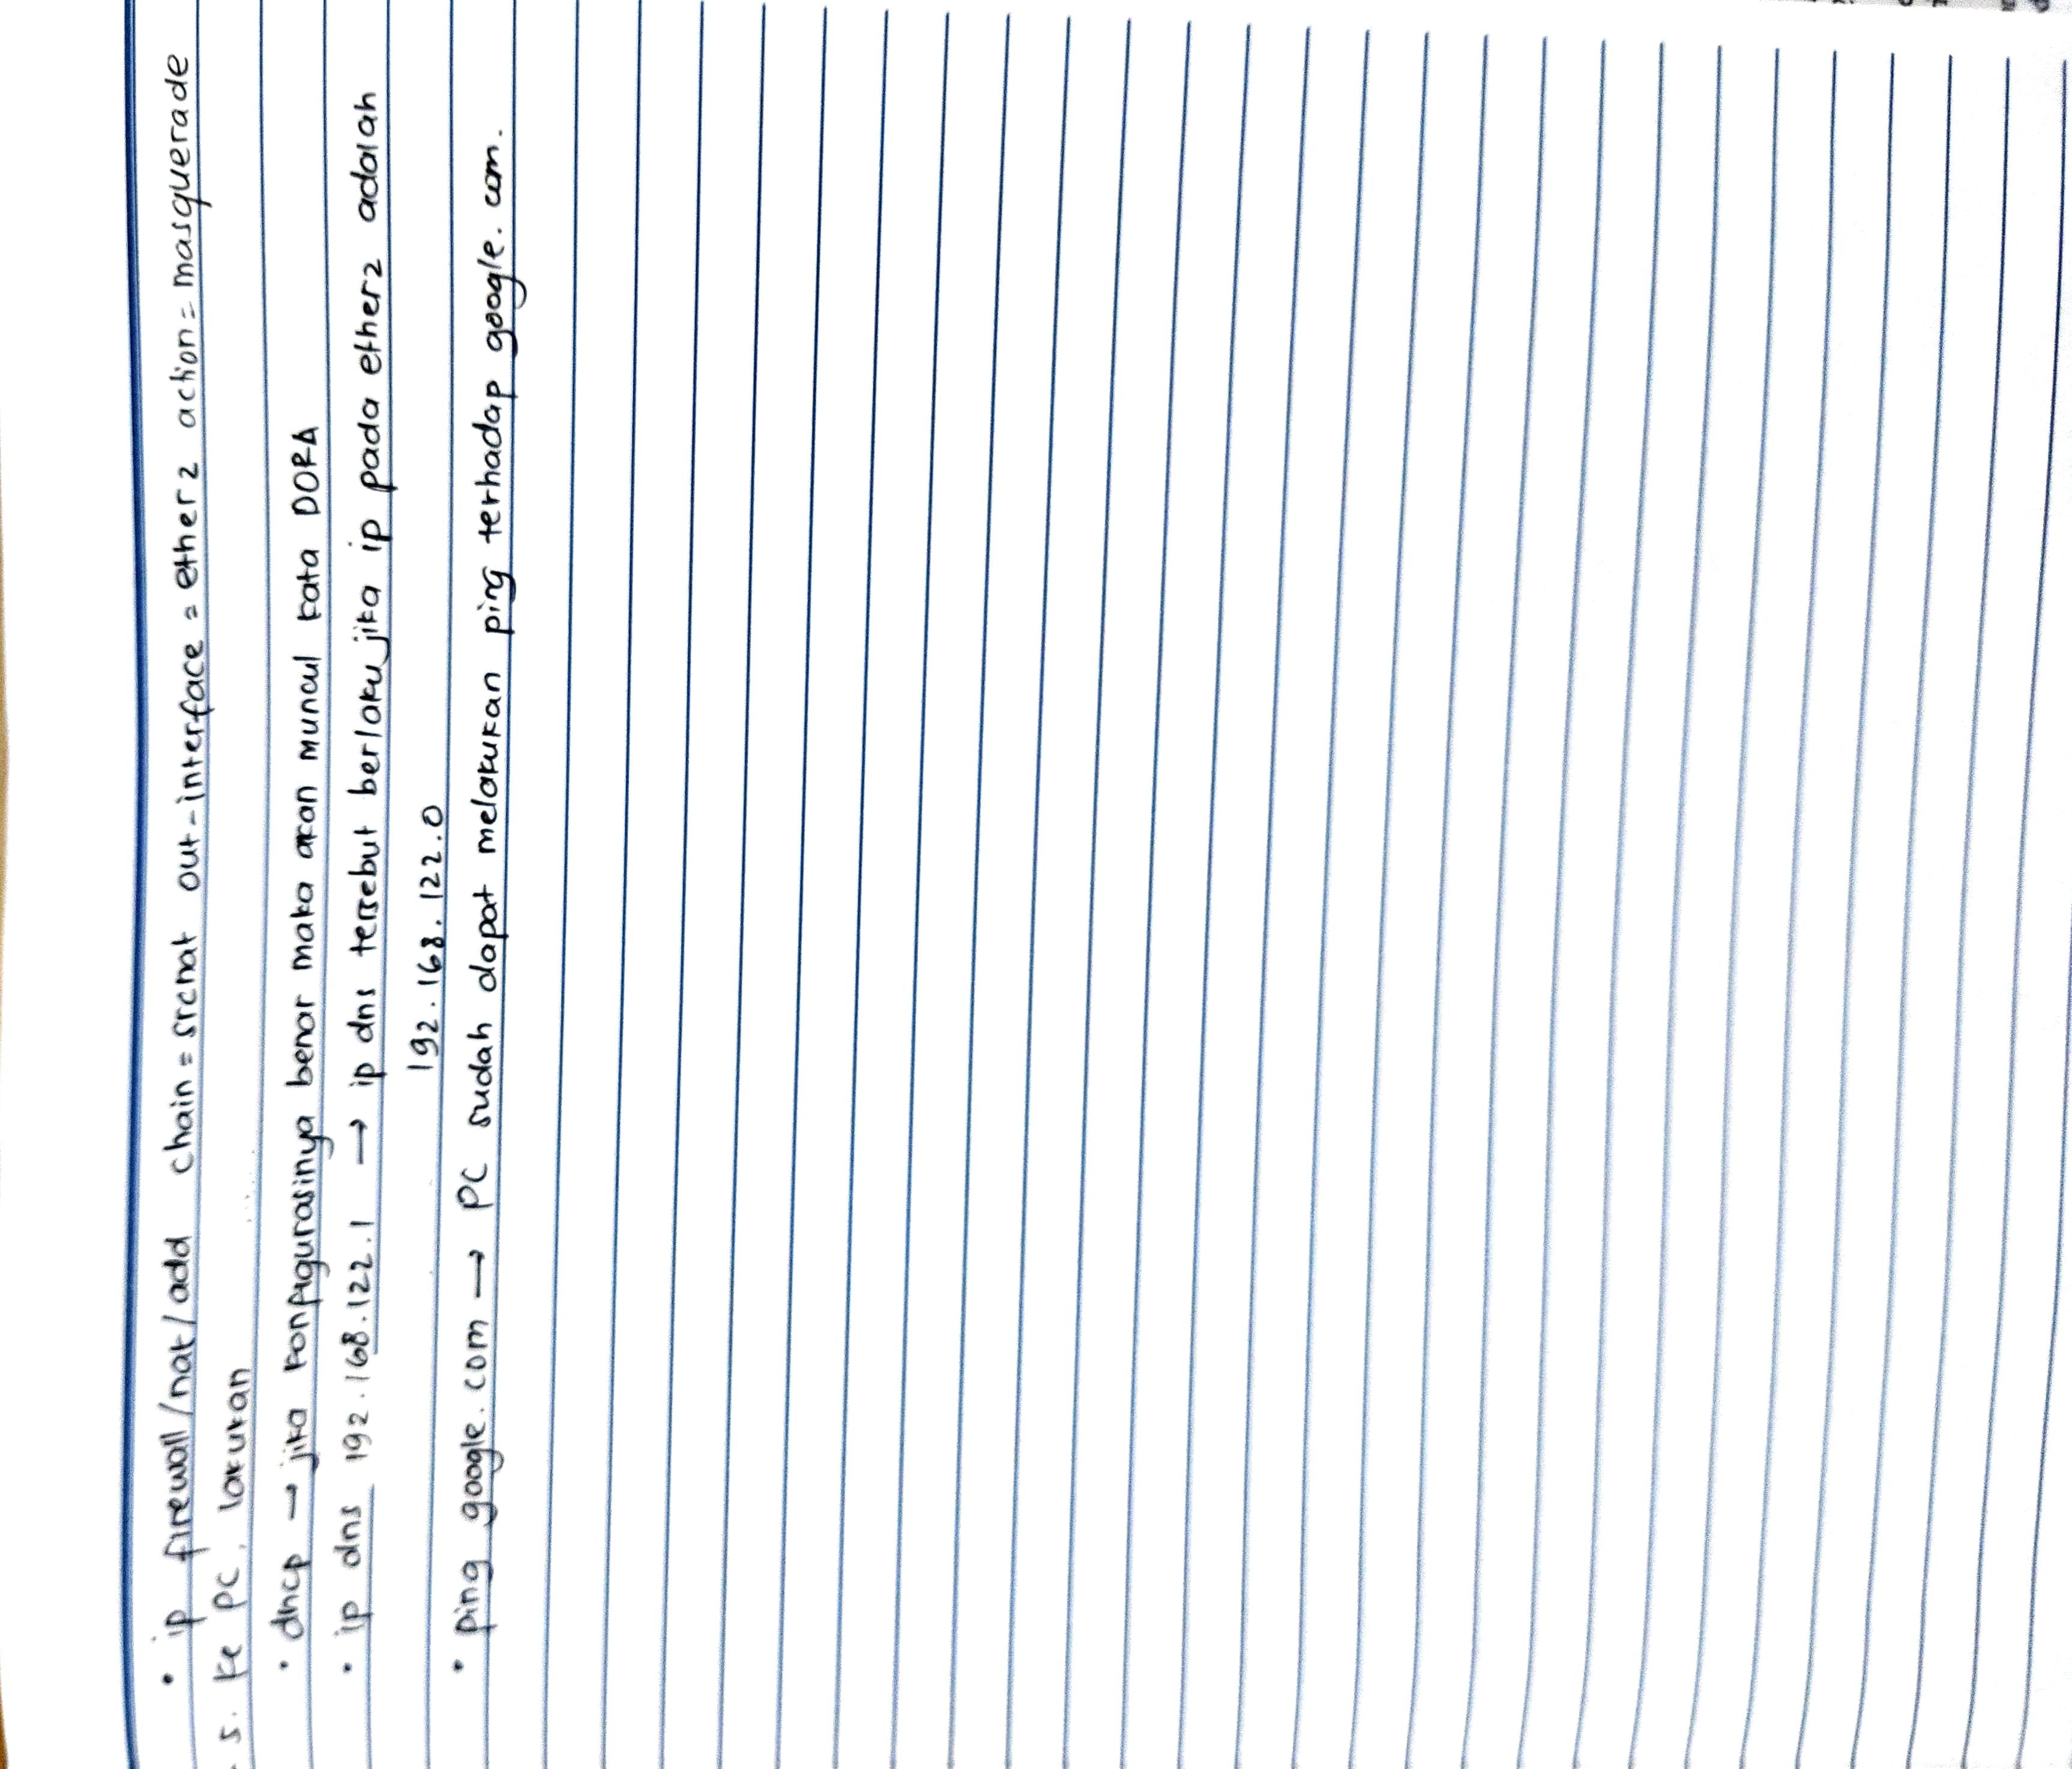 • ip firewall/nat/add chain=srcnat out-interface=ether2 action=masquerade
5. Ke PC, lakukan
• dhcp → jika konfigurasinya benar maka akan muncul kata DORA
• ip dns 192.168.122.1 → ip dns tersebut berlaku jika ip pada ether2 adalah
192.168.122.0
• ping google.com → PC sudah dapat melakukan ping terhadap google.com.